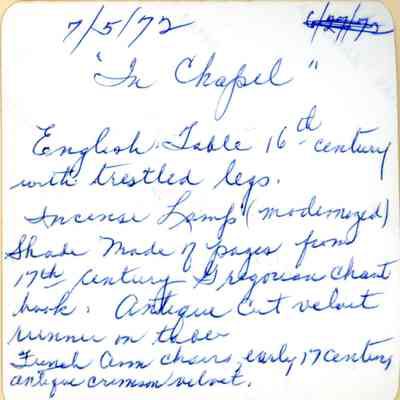 7/5/72 6/27/72
"In Chapel"
English Table 16th century
with trestled legs.
Incense Lamp (modernized)
Shade Made of pages from
17th century Gregorian Chant
book. Antique Cut velvet
runner on table
French Arm chairs, early 17 century
antique crimson velvet.